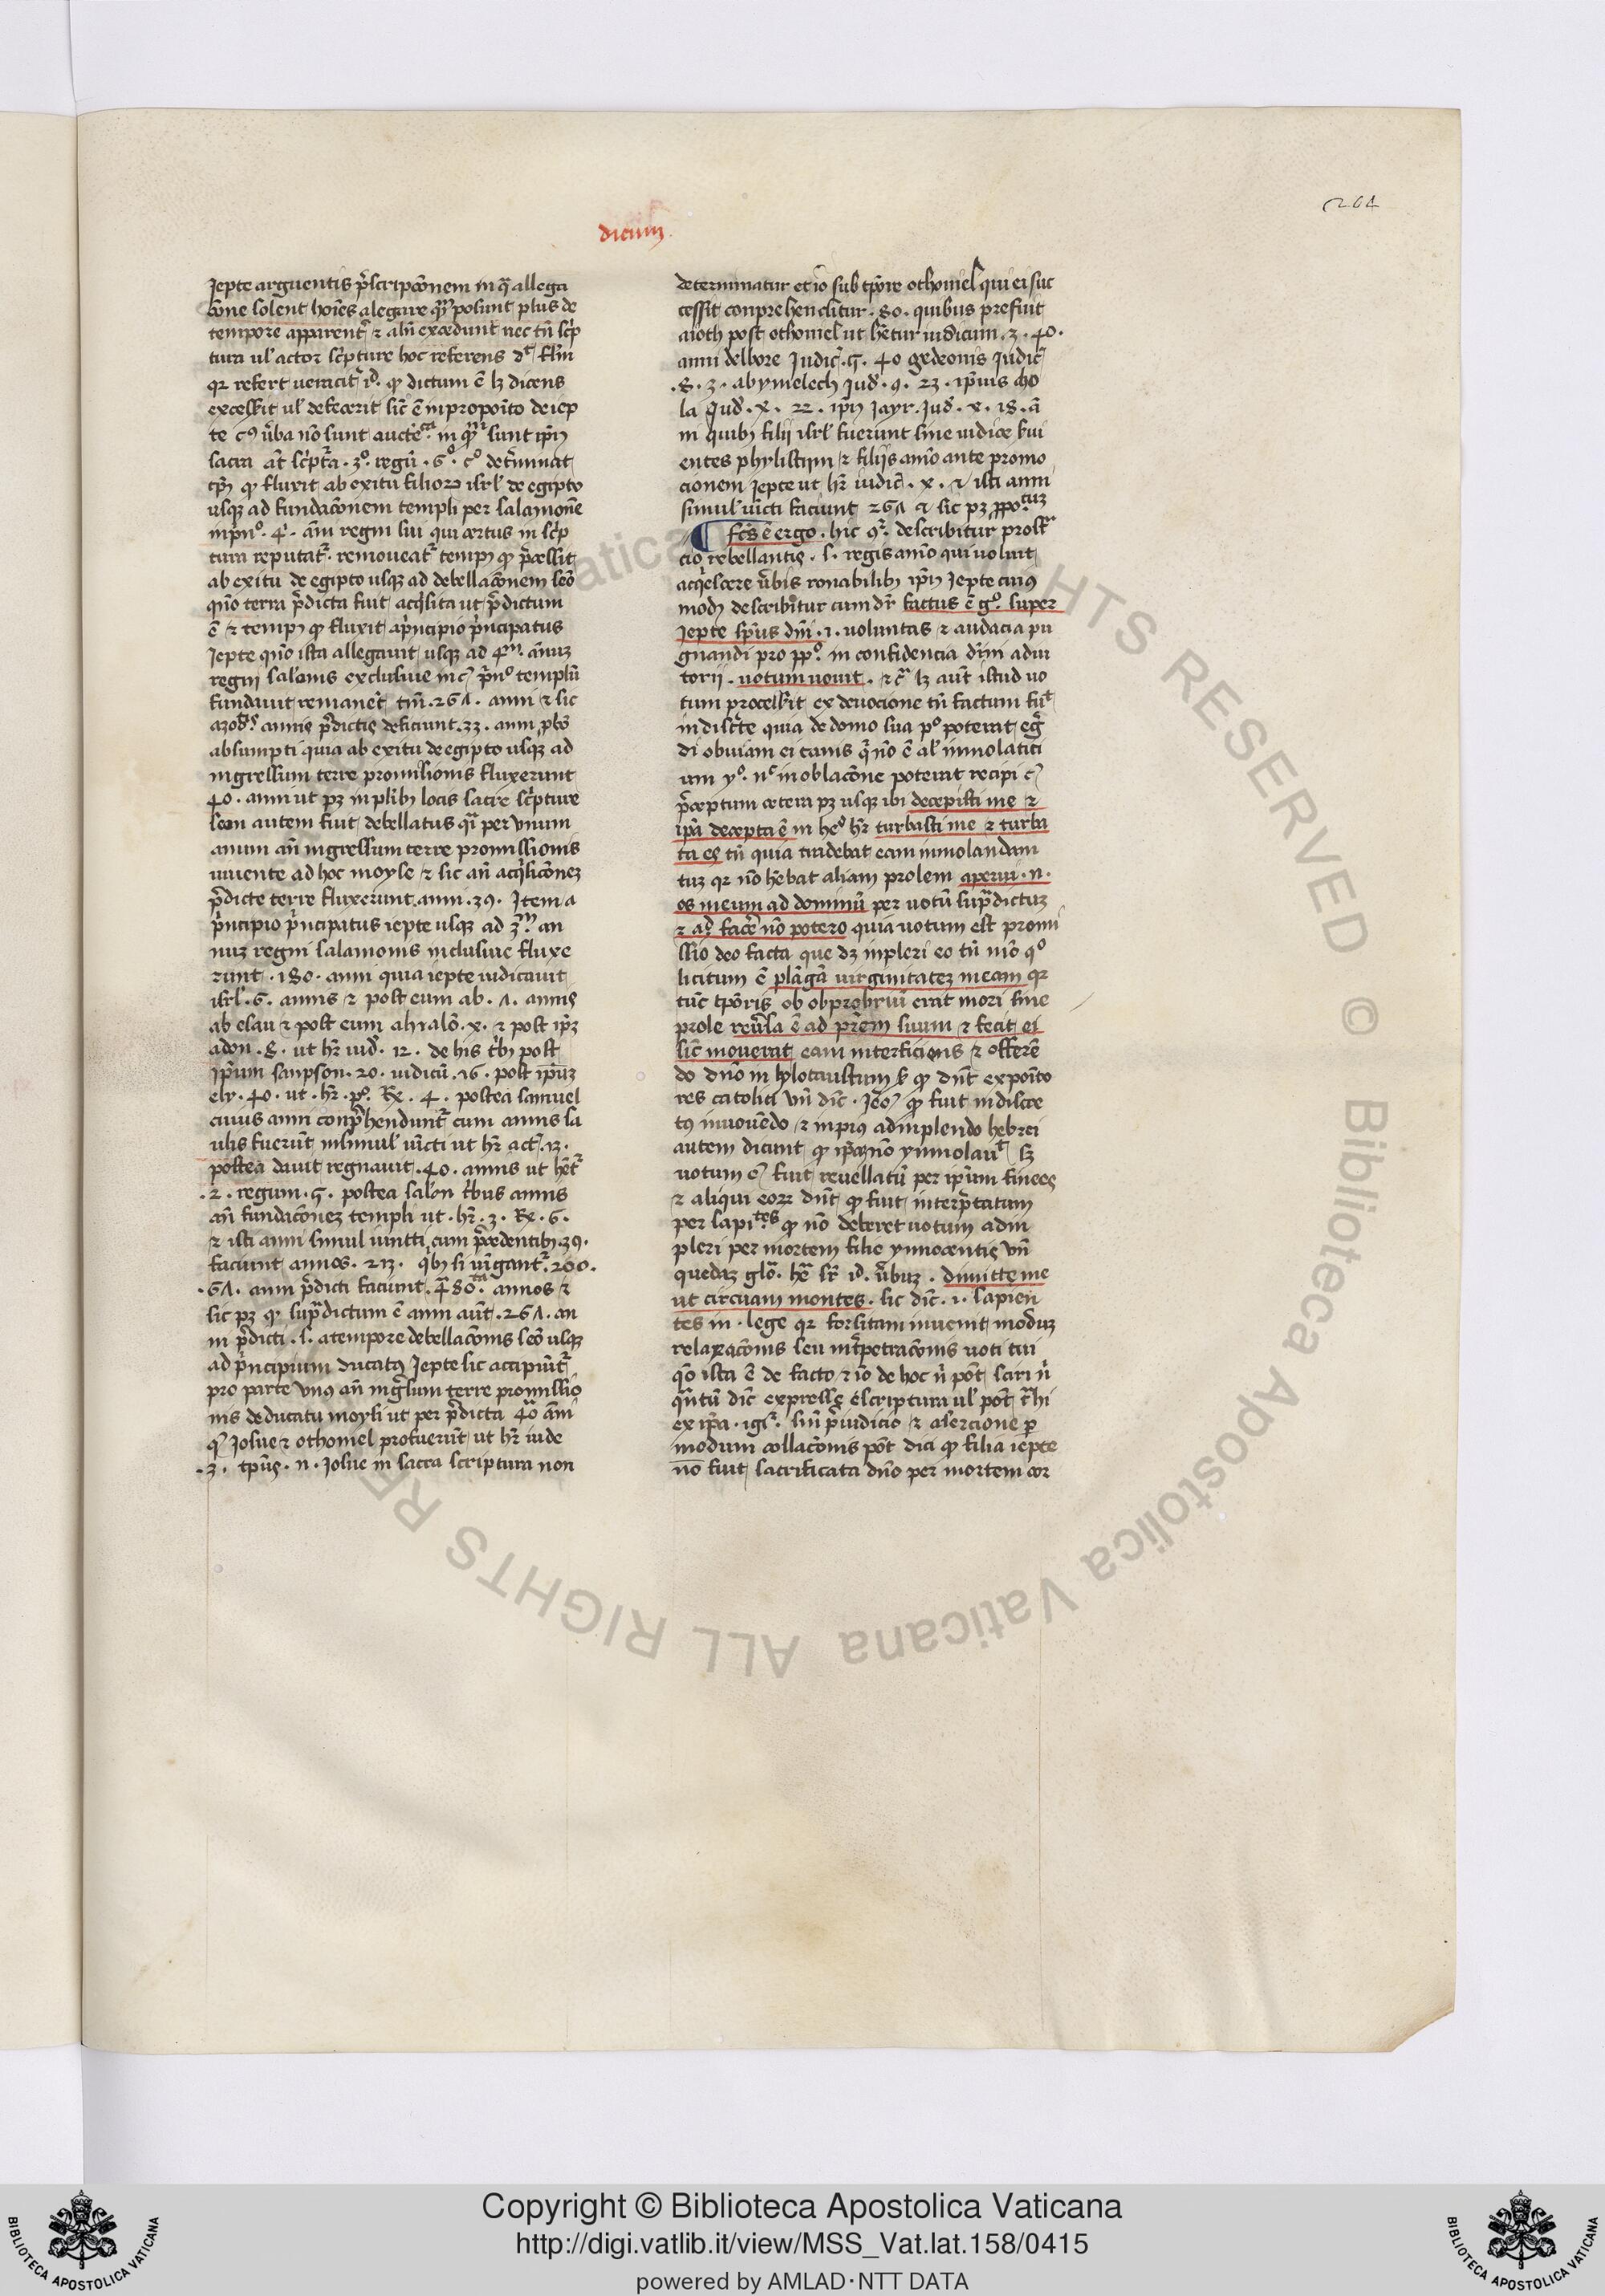 204
dicum
Jepte arguentis p̄scripcōnem in qͣ allega
cōne solent hoīes alegare qm̄ posunt plus de
tempore apparenť ⁊ aliī excedunt nec tn̄ scͥp
tura uł actor scͥpture hoc referens dt̄ flm̄
qr refert ueraciť id̄ ꝙ dictum ē lꝫ dicens
excessit uł defecerit sic̄ ē in proposito de iep
te cꝰ ūba nō sunt in sunt ip̄i
sacra at̄ scͥptͣa . 3º. regū . 6º. cº deťminat
tp̄s ꝙ fluxit ab exitu filioꝝ isrł de egipto
usqꝫ ad fundacōnem templi per salamonē
inpͥnº . 4. am̄ regni sui qui certus in scͥp
tura reputať . remoueať tempꝰ ꝙ p̄cessit
ab exitu de egipto usqꝫ ad debellacōnem seō
qn̄o terra p̄dicta fuit acqͥsita ut p̄dictum
ē ⁊ tempꝰ ꝙ fluxit apͥncipio pͥncipatus
Jepte qn̄o ista allegauit usqꝫ ad 4m̄ annuꝫ
regni salōnis exclusiue in cꝰ pͥnº templū
fundauit remanēt tm̄ . 267 . anni ⁊ sic
a 206 annis p̄dictis deficiunt . 33 . anni
absumpti quia ab exitu de egipto usqꝫ ad
ingressum terre promissionis fluxerunt
40 . anni ut pꝫ in plibꝫ locis sacre scͥpture
seon autem fuit debellatus qͣ per vnum
annum an̄ ingressum terre promissionis
uiuente ad hoc moyse ⁊ sic an̄ acqͥsicōneꝫ
p̄dicte terre fluxerunt . anni . 39 . Item a
pͥncipio pͥncipatus iepte usqꝫ ad 3m̄ an
nuꝫ regni salamonis inclusiue fluxe
runt . 180 . anni quia iepte iudicauit
isrł . 6 . annis ⁊ post eum ab . 7 . annis
ab esau ⁊ post eum ahialō . x . ⁊ post ip̄ꝫ
adon . 8 . ut hr̄ iud̄ . 12 . de his tͥbꝫ post
ip̄um sanpson . 20 . iudicū . 16 . post ip̄uꝫ
ely . 40 . ut . hr̄ . pº. Re . 4 . postea samuel
cuius anni conp̄hendunť cum annis sa
ulis fuerūt insimuł iūcti ut hr̄ act̄ . 13 .
postea dauit regnauit . 40 . annis ut hēť
. 2 . regum . 5 . postea salōn tͥbus annis
an̄ fundacōneꝫ templi ut . hr̄ . 3 . Re . 6 .
⁊ isti anni simul iuntti cum p̄cedentibꝫ . 39 .
faciunt annos . 213 . qͥbꝫ si iūganť . 200 .
. 67 . anni p̄dicti faciunt . 480 . annos ⁊
sic pꝫ qr sup̄dictum ē anni aūt . 267 . an
ni p̄dicti . s . a tempore debellacōnis seō usqꝫ
ad pͥncipium ducatꝰ Jepte sic accipiūť
pro parte vnꝰ an̄ ingͣsum terre promissio
nis de ducatu moysi ut per p̄dicta 40 anni
qͥ Josue ⁊ othoniel profuerūt ut hr̄ iude
. 3 . tp̄us . n . Josue in sacra scriptura non
determinatur et iō sub tp̄ore othoniel qui ei suc
cessit conprehenditur . 80 . quibus prefuit
aioth post othoniel ut hētur iudicum . 3 . 40 .
anni delbore Judic̄ . 5 . 40 gedeonis Judic̄
. 8 . 3 . abymelech Jud̄ . 9 . 23 . ip̄ius tho
la Jud̄ . x . 22 . ip̄iꝰ Jayr . Jud̄ . x . 18 . ā
ni quibꝫ filij isrł fuerunt sine iudice sͥui
entes phylistijm ⁊ filijs amō ante promo
cionem Jepte ut hr̄ iudic̄ . x . ⁊ isti anni
simuł uīcti faciunt 267 ⁊ sic pꝫ
fcs̄ ē ergo . hic 9ͬ . describitur
cio rebellantis . s . regis amō qui uoluit
acqͥescere ūbis ronabilibꝫ ip̄iꝰ Jepte cuiꝰ
modꝰ describitur cum dr̄ factus ē gº. super
Jepte sp̄us dn̄i . 1 . voluntas ⁊ audacia pu
gnandi pro ppº. in confidencia diuini adiu
torii . uotum uouit . ⁊ cͣ lꝫ aūt istud uo
tum processit ex deuocione tn̄ factum fuͭ
indiscͬte quia de domo sua pº poterat egͬ
di obuiam ei canis qͥ nō ē ał inmolatici
um yº. nͨ in oblacōne poterat recipi cͣ
p̄ceptum cetera pꝫ usqꝫ ibi decepisti me ⁊
ip̄a decepta ē in heͦ hr̄ turbasti me ⁊ turba
ta es tn̄ quia tradebat eam inmolandam
tuꝫ qr nō hēbat aliam prolem aperui . n .
os meum ad dominū per uotū sup̄dictuꝫ
⁊ ad̄ facͤ nō potero quia uotum est promi
ssio deo facta que dꝫ inpleri eo tn̄ mō qº
licitum ē plāgā uirginitateꝫ meam qr
tūc tp̄oris ob obprobriū erat mori sine
prole reuͬsa ē ad p̄rem suum ⁊ fecit ei
sic̄ mouerat eam interficiens ⁊ offerē
do dn̄o in holocaustum ꝙ dn̄t exposito
res catolici vn̄ dic̄ . ꝙ fuit indiscre
tꝰ in uouēdo ⁊ inpius ad inplendo hebrei
autem dicunt ꝙ ip̄aꝫ nō ynmolauͭ sꝫ
uotum eͥ fuit reuellatū per ip̄um finees
⁊ aliqui eoꝝ dn̄t ꝙ fuit interp̄tatum
per sapītes ꝙ nō deberet uotum adin
pleri per mortem filie ynnocentis vn̄
quedaꝫ glō . hͤ sr̄ id̄ ūbuꝫ . dimitte me
ut circuam montes . sic dic̄ . 1 . sapien
tes in . lege qr forsitam inuenit moduꝫ
relaxacōnis seu intͬpetracōnis uoti tui
qō ista ē de facto ⁊ iō de hoc n̄ pōt sciri n̄
qn̄tū dic̄ expresse escriptura uł pōt tͬhi
ex ip̄a . igiͬ. sin̄ p̄iudicio ⁊ asͬercione p̱
modum collacōnis pōt dici ꝙ filia iepte
nō fuit sacrificata dn̄o per mortem cor
Copyright © Biblioteca Apostolica Vaticana
http://digi.vatlib.it/view/MSS_Vat.lat.158/0415
powered by AMLAD·NTT DATA
BIBLIOTECA APOSTOLICA VATICANA
BIBLIOTECA APOSTOLICA VATICANA
© Biblioteca Apostolica Vaticana ALL RIGHTS RESERVED